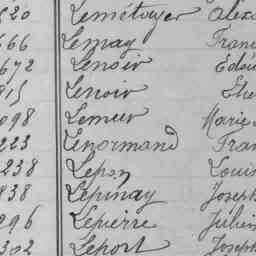 520 Lemétayer Alex
666 Lemay Fran
672 Lenoir Edou
815 Lenoir
098 Lemeur Marie
223 Lenormand Fran
238 Lepon Louis
838 Lepinay Joseph
296 Lepierre Julien
302 Leport Joseph